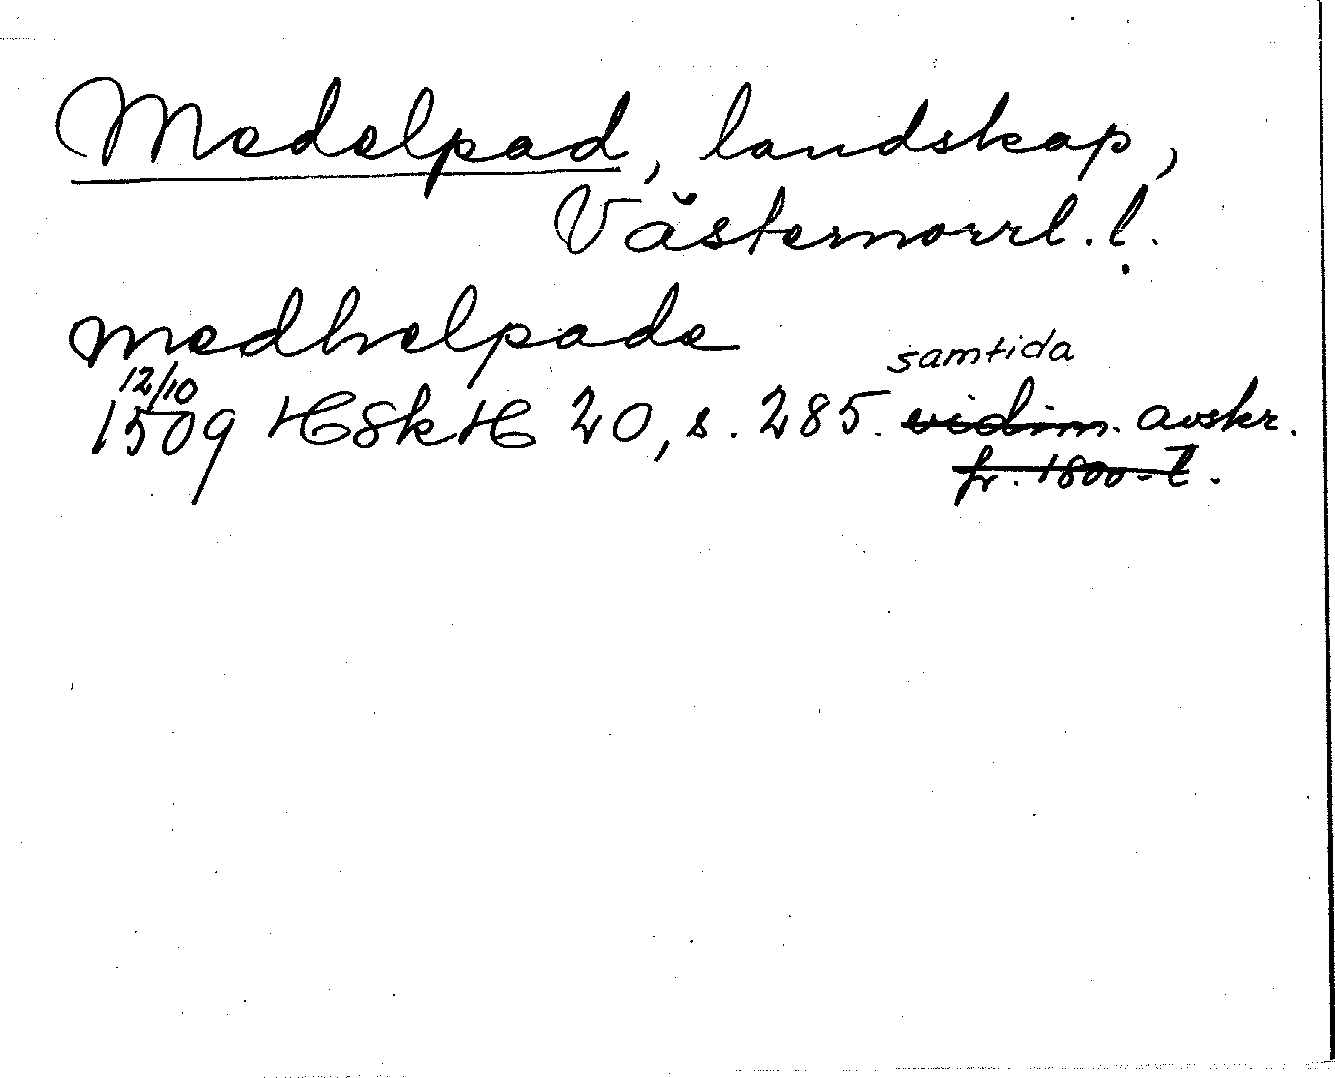 Medelpad, landskap,
Västernorrl. l.
medhelpade
12/10
samtida
1509 HSkH 20, s. 285. vidim. avskr.
fr. 1800-t.